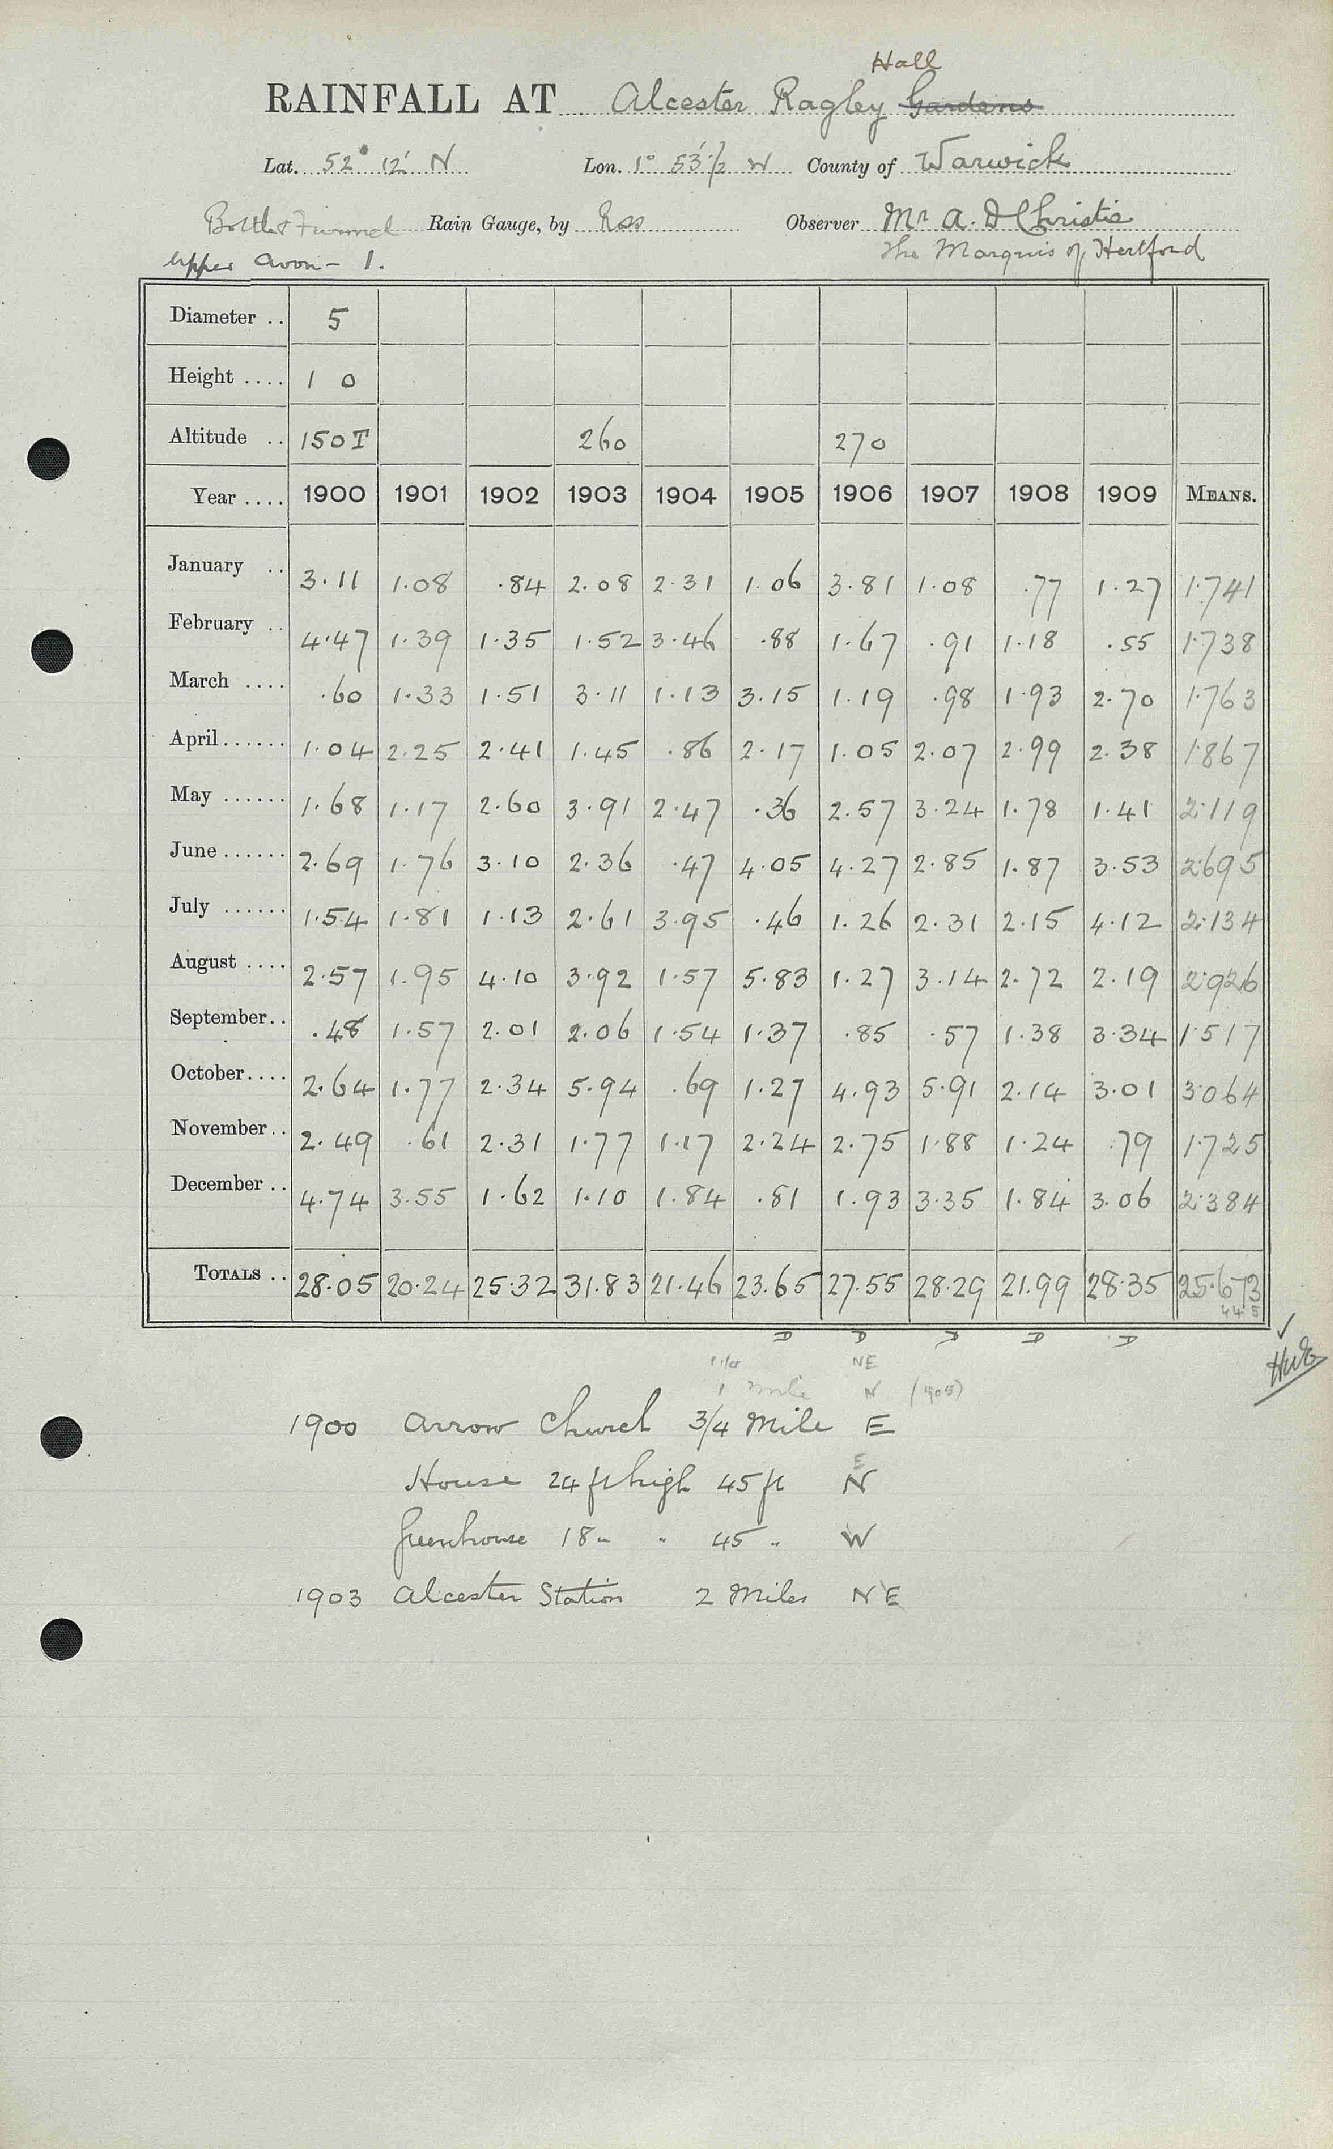 Hall
RAINFALL AT Alcester Ragley Gardens
Lat. 52° 12' N Lon. 1° 53' 1/2 W County of Warwick
Bottle & Funnel Rain Gauge, by Ross Observer Mr A. D Christie
Upper Avon - 1. The Marquis of Hertford
Diameter .. 5
Height .... 1 0
Altitude .. 150 T 260 270
Year .... 1900 1901 1902 1903 1904 1905 1906 1907 1908 1909 MEANS.
January .. 3.11 1.08 .84 2.08 2.31 1.06 3.81 1.08 .77 1.27 1.741
February .. 4.47 1.39 1.35 1.52 3.46 .88 1.67 .91 1.18 .55 1.738
March .... .60 1.33 1.51 3.11 1.13 3.15 1.19 .98 1.93 2.70 1.763
April ...... 1.04 2.25 2.41 1.45 .86 2.17 1.05 2.07 2.99 2.38 1.867
May ...... 1.68 1.17 2.60 3.91 2.47 .36 2.57 3.24 1.78 1.41 2.119
June ...... 2.69 1.76 3.10 2.36 .47 4.05 4.27 2.85 1.87 3.53 2.695
July ...... 1.54 1.81 1.13 2.61 3.95 .46 1.26 2.31 2.15 4.12 2.134
August .... 2.57 1.95 4.10 3.92 1.57 5.83 1.27 3.14 2.72 2.19 2.926
September .. .48 1.57 2.01 2.06 1.54 1.37 .85 .57 1.38 3.34 1.517
October .... 2.64 1.77 2.34 5.94 .69 1.27 4.93 5.91 2.14 3.01 3.064
November .. 2.49 .61 2.31 1.77 1.17 2.24 2.75 1.88 1.24 .79 1.725
December .. 4.74 3.55 1.62 1.10 1.84 .81 1.93 3.35 1.84 3.06 2.384
TOTALS .. 28.05 20.24 25.32 31.83 21.46 23.65 27.55 28.29 21.99 28.35 25.673
44 5
D D D D D
NE
1 mile N (1905)
1900 Arrow Church 3/4 Mile E
E
House 24 ft high 45 ft N
Greenhouse 18 " " 45 " W
1903 Alcester Station 2 Miles NE